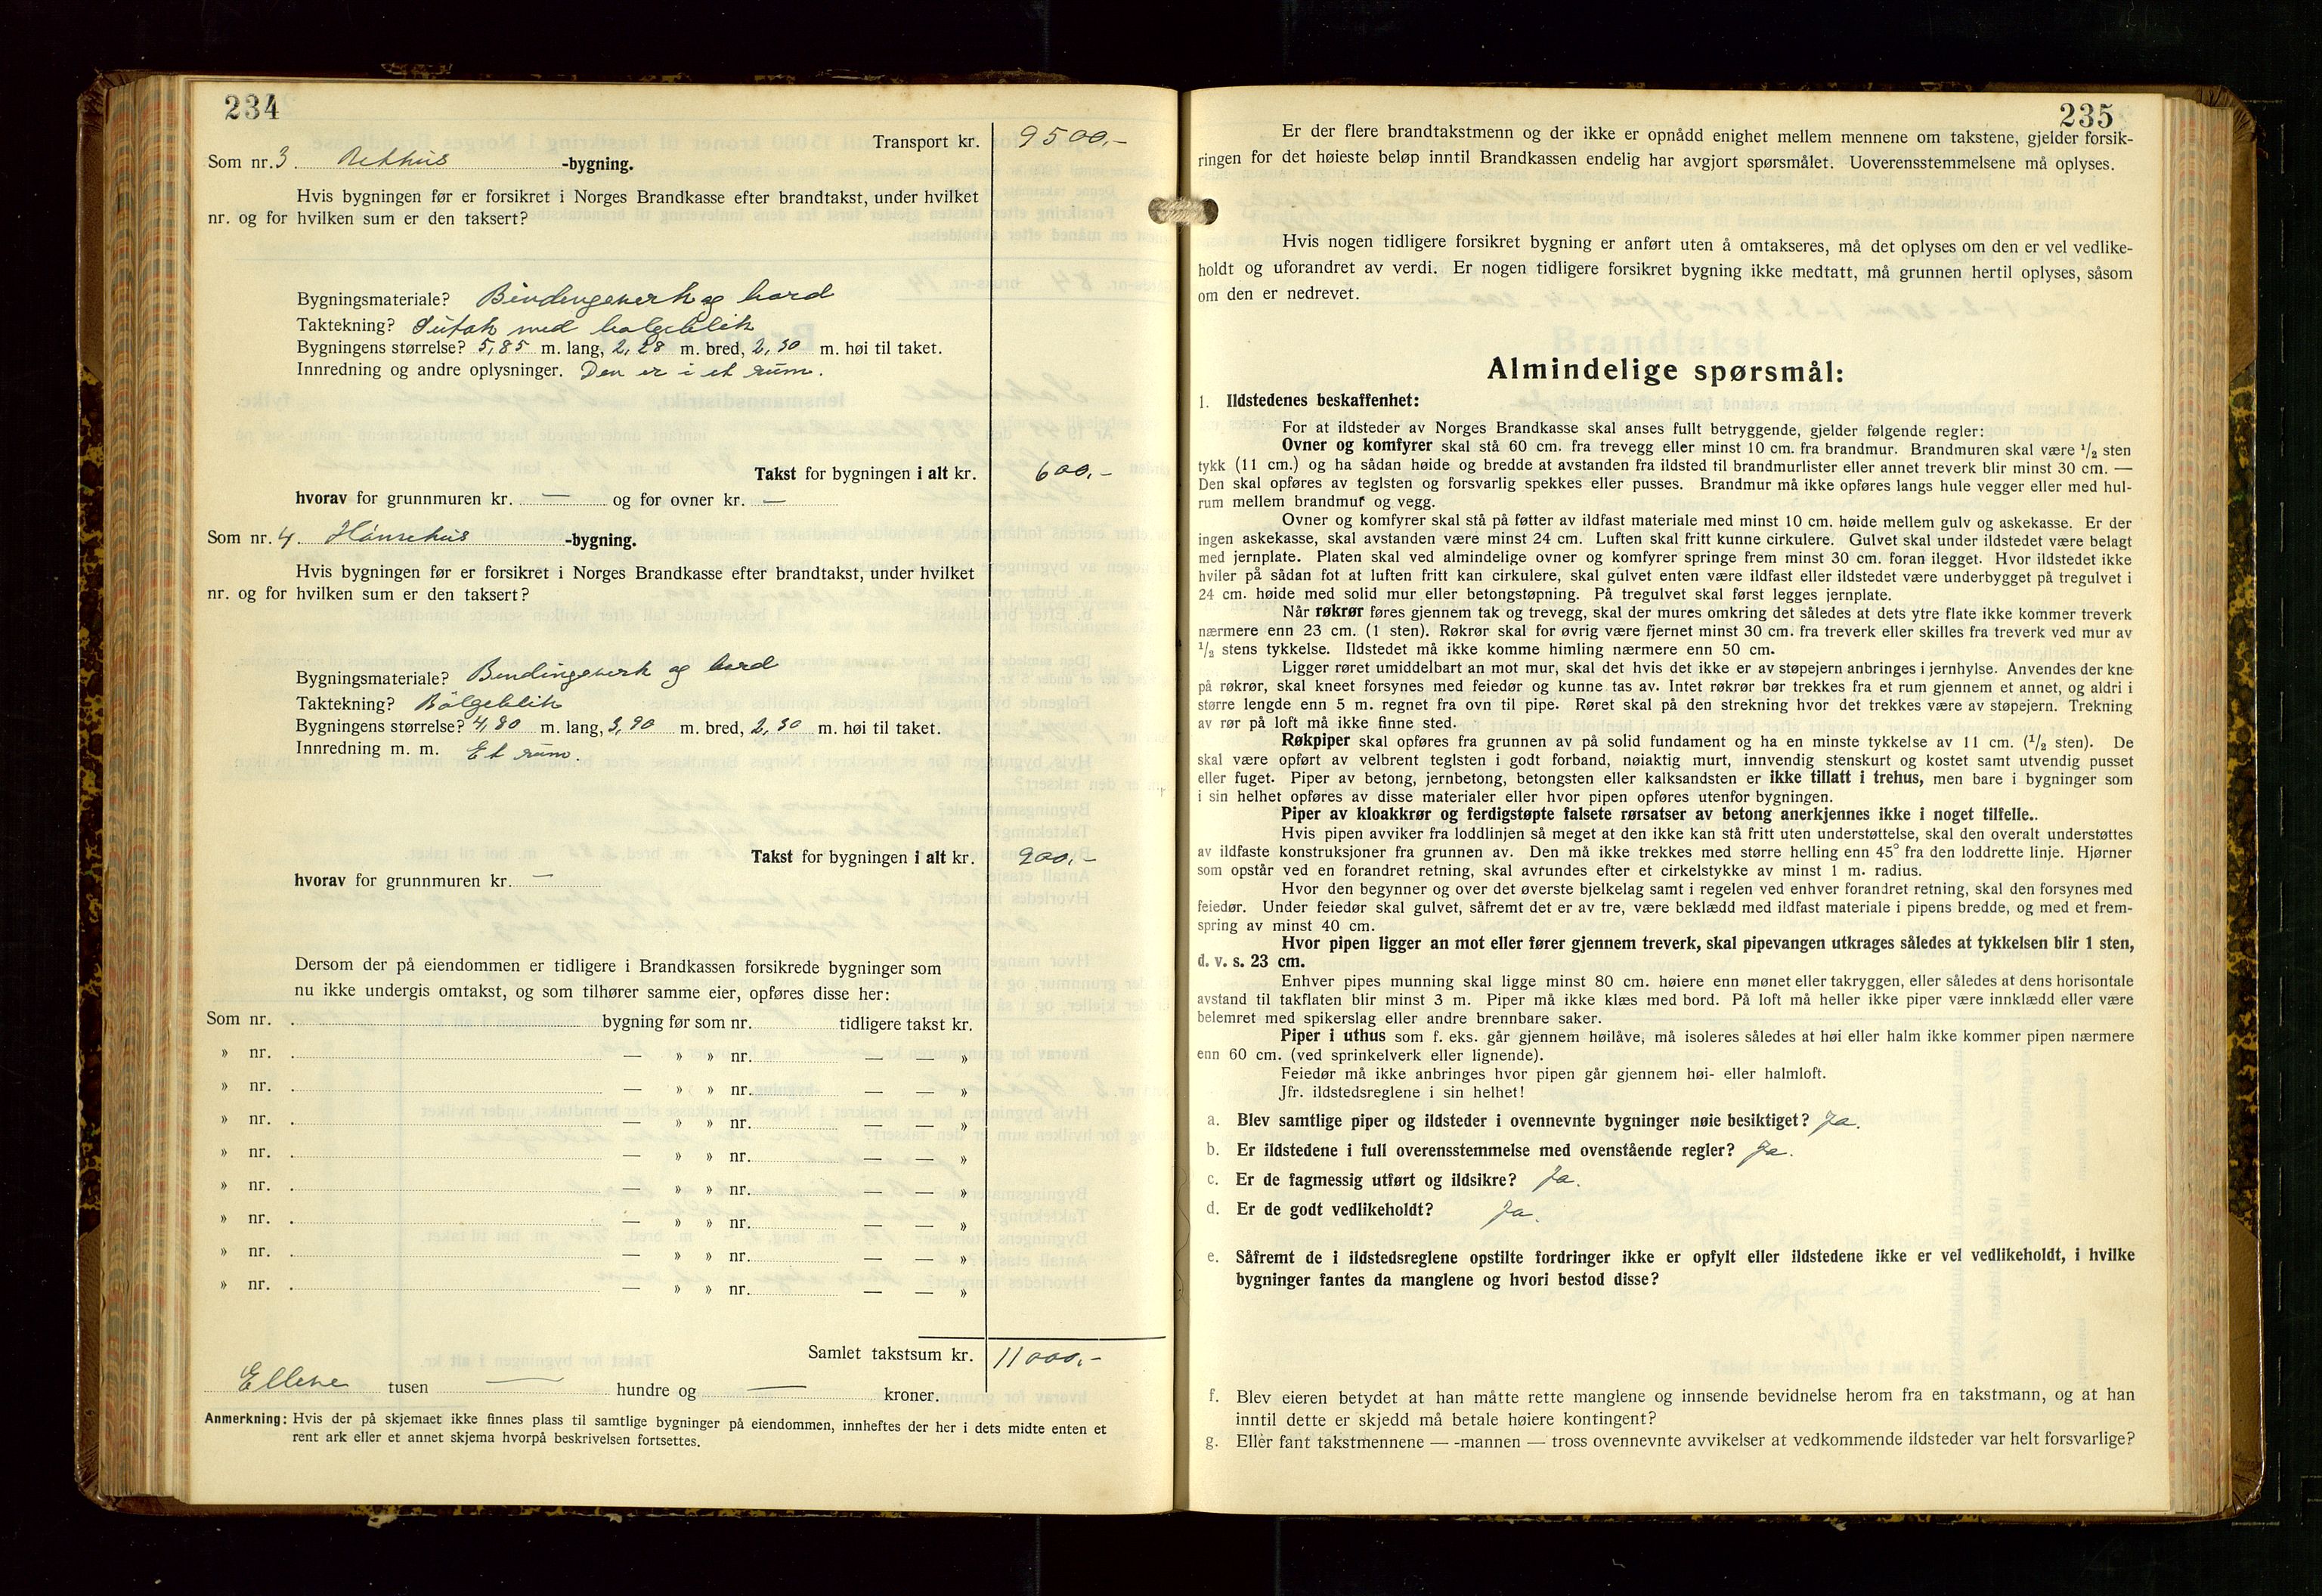 234
Transport kr. 9500,-
Som nr. 3. -bygning.
Hvis bygningen før er forsikret i Norges Brandkasse efter brandtakst, under hvilket
nr. og for hvilken sum er den taksert?
Bygningsmateriale? Bindingsverk og bord
Taktekning? Sutak med bølgeblik
Bygningens størrelse? 5,85 m. lang, 2,28 m. bred, 2,30 m. høi til taket.
Innredning og andre oplysninger. Den er i et rum.
Takst for bygningen i alt kr. 600,-
hvorav for grunnmuren kr. — og for ovner kr. —
Som nr. 4. Hønsehus -bygning.
Hvis bygningen før er forsikret i Norges Brandkasse efter brandtakst, under hvilket
nr. og for hvilken sum er den taksert?
Bygningsmateriale? Bindingsverk og bord
Taktekning? Bølgeblik
Bygningens størrelse? 4,80 m. lang, 3,90 m. bred, 2,30 m. høi til taket.
Innredning m. m. Et rum.
Takst for bygningen i alt kr. 900,-
hvorav for grunnmuren kr. —
Dersom der på eiendommen er tidligere i Brandkassen forsikrede bygninger som
nu ikke undergis omtakst, og som tilhører samme eier, opføres disse her:
Som nr. . bygning før som nr. tidligere takst kr.
» nr. . — » » nr. — — »
» nr. . — » » nr. — — »
» nr. . — » » nr. — — »
» nr. . — » » nr. — — »
» nr. . — » » nr. — — »
» nr. . — » » nr. — — »
» nr. . — » » nr. — — »
» nr. . — » » nr. — — »
Samlet takstsum kr. 11000,-
Elleve tusen — hundre og — kroner.
Anmerkning: Hvis der på skjemaet ikke finnes plass til samtlige bygninger på eiendommen, innheftes der her i dets midte enten et
rent ark eller et annet skjema hvorpå beskrivelsen fortsettes.
235
Er der flere brandtakstmenn og der ikke er opnådd enighet mellem mennene om takstene, gjelder forsik-
ringen for det høieste beløp inntil Brandkassen endelig har avgjort spørsmålet. Uoverensstemmelsene må oplyses.
Hvis nogen tidligere forsikret bygning er anført uten å omtakseres, må det oplyses om den er vel vedlike-
holdt og uforandret av verdi. Er nogen tidligere forsikret bygning ikke medtatt, må grunnen hertil oplyses, såsom
om den er nedrevet.
Almindelige spørsmål:
1. Ildstedenes beskaffenhet:
For at ildsteder av Norges Brandkasse skal anses fullt betryggende, gjelder følgende regler:
Ovner og komfyrer skal stå 60 cm. fra trevegg eller minst 10 cm. fra brandmur. Brandmuren skal være 1/2 sten
tykk (11 cm.) og ha sådan høide og bredde at avstanden fra ildsted til brandmurlister eller annet treverk blir minst 30 cm. —
Den skal opføres av teglsten og forsvarlig spekkes eller pusses. Brandmur må ikke opføres langs hule vegger eller med hul-
rum mellem brandmur og vegg.
Ovner og komfyrer skal stå på føtter av ildfast materiale med minst 10 cm. høide mellem gulv og askekasse. Er der
ingen askekasse, skal avstanden være minst 24 cm. Luften skal fritt kunne cirkulere. Gulvet skal under ildstedet være belagt
med jernplate. Platen skal ved almindelige ovner og komfyrer springe frem minst 30 cm. foran ilegget. Hvor ildstedet ikke
hviler på sådan fot at luften fritt kan cirkulere, skal gulvet enten være ildfast eller ildstedet være underbygget på tregulvet i
24 cm. høide med solid mur eller betongstøpning. På tregulvet skal først legges jernplate.
Når røkrør føres gjennem tak og trevegg, skal der mures omkring det således at dets ytre flate ikke kommer treverk
nærmere enn 23 cm. (1 sten). Røkrør skal for øvrig være fjernet minst 30 cm. fra treverk eller skilles fra treverk ved mur av
1/2 stens tykkelse. Ildstedet må ikke komme himling nærmere enn 50 cm.
Ligger røret umiddelbart an mot mur, skal det hvis det ikke er av støpejern anbringes i jernhylse. Anvendes der kne
på røkrør, skal kneet forsynes med feiedør og kunne tas av. Intet røkrør bør trekkes fra et rum gjennem et annet, og aldri i
større lengde enn 5 m. regnet fra ovn til pipe. Røret skal på den strekning hvor det trekkes være av støpejern. Trekning
av rør på loft må ikke finne sted.
Røkpiper skal opføres fra grunnen av på solid fundament og ha en minste tykkelse av 11 cm. (1/2 sten). De
skal være opført av velbrent teglsten i godt forband, nøiaktig murt, innvendig stenskurt og kostet samt utvendig pusset
eller fuget. Piper av betong, jernbetong, betongsten eller kalksandsten er ikke tillatt i trehus, men bare i bygninger som
i sin helhet opføres av disse materialer eller hvor pipen opføres utenfor bygningen.
Piper av kloakkrør og ferdigstøpte falsete rørsatser av betong anerkjennes ikke i noget tilfelle..
Hvis pipen avviker fra loddlinjen så meget at den ikke kan stå fritt uten understøttelse, skal den overalt understøttes
av ildfaste konstruksjoner fra grunnen av. Den må ikke trekkes med større helling enn 45° fra den loddrette linje. Hjørner
som opstår ved en forandret retning, skal avrundes efter et cirkelstykke av minst 1 m. radius.
Hvor den begynner og over det øverste bjelkelag samt i regelen ved enhver forandret retning, skal den forsynes med
feiedør. Under feiedør skal gulvet, såfremt det er av tre, være beklædd med ildfast materiale i pipens bredde, og med et frem-
spring av minst 40 cm.
Hvor pipen ligger an mot eller fører gjennem treverk, skal pipevangen utkrages således at tykkelsen blir 1 sten,
d. v. s. 23 cm.
Enhver pipes munning skal ligge minst 80 cm. høiere enn mønet eller takryggen, eller således at dens horisontale
avstand til takflaten blir minst 3 m. Piper må ikke klæs med bord. På loft må heller ikke piper være innklædd eller være
belemret med spikerslag eller andre brennbare saker.
Piper i uthus som f. eks. går gjennem høilåve, må isoleres således at høi eller halm ikke kommer pipen nærmere
enn 60 cm. (ved sprinkelverk eller lignende).
Feiedør må ikke anbringes hvor pipen går gjennem høi- eller halmloft.
Jfr. ildstedsreglene i sin helhet!
a. Blev samtlige piper og ildsteder i ovennevnte bygninger nøie besiktiget? Ja.
b. Er ildstedene i full overensstemmelse med ovenstående regler? Ja.
c. Er de fagmessig utført og ildsikre? Ja.
d. Er de godt vedlikeholdt? Ja.
e. Såfremt de i ildstedsreglene opstilte fordringer ikke er opfylt eller ildstedene ikke er vel vedlikeholdt, i hvilke
bygninger fantes da manglene og hvori bestod disse?
f. Blev eieren betydet at han måtte rette manglene og innsende bevidnelse herom fra en takstmann, og at han
inntil dette er skjedd må betale høiere kontingent?
g. Eller fant takstmennene — -mannen — tross ovennevnte avvikelser at vedkommende ildsteder var helt forsvarlige?